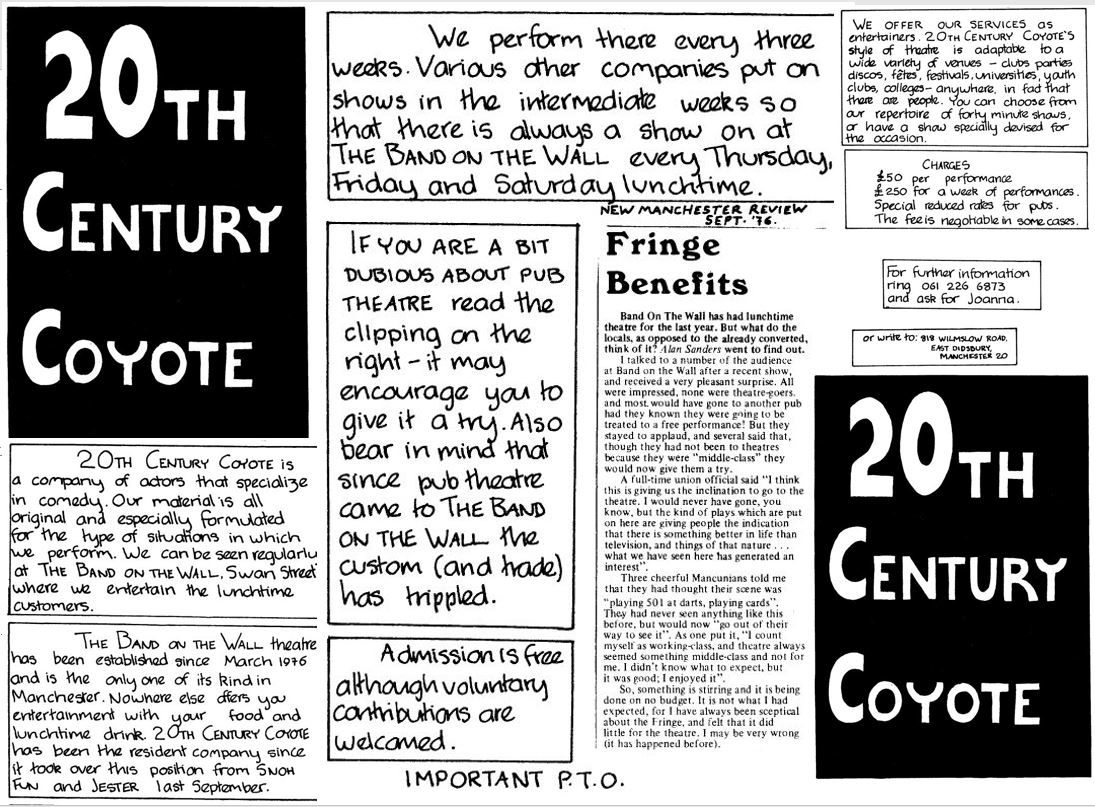 20TH
CENTURY
COYOTE
20TH CENTURY COYOTE is
a company of actors that specialize
in comedy. Our material is all
original and especially formulated
for the type of situations in which
we perform. We can be seen regularly
at THE BAND ON THE WALL, Swan Street
where we entertain the lunchtime
customers.
THE BAND ON THE WALL theatre
has been established since March 1976
and is the only one of its kind in
Manchester. Nowhere else offers you
entertainment with your food and
lunchtime drink. 20TH CENTURY COYOTE
has been the resident company since
it took over this position from SNOH
FUN and JESTER last September.
We perform there every three
weeks. Various other companies put on
shows in the intermediate weeks so
that there is always a show on at
THE BAND ON THE WALL every Thursday,
Friday and Saturday lunchtime.
IF YOU ARE A BIT
DUBIOUS ABOUT PUB
THEATRE read the
clipping on the
right - it may
encourage you to
give it a try. Also
bear in mind that
since pub theatre
came to THE BAND
ON THE WALL the
custom (and trade)
has trippled.
Admission is free
although voluntary
contributions are
welcomed.
IMPORTANT P.T.O.
NEW MANCHESTER REVIEW
SEPT. '76.
Fringe
Benefits
Band On The Wall has had lunchtime
theatre for the last year. But what do the
locals, as opposed to the already converted,
think of it? Alan Sanders went to find out.
I talked to a number of the audience
at Band on the Wall after a recent show,
and received a very pleasant surprise. All
were impressed, none were theatre-goers.
and most would have gone to another pub
had they known they were going to be
treated to a free performance! But they
stayed to applaud, and several said that,
though they had not been to theatres
because they were "middle-class" they
would now give them a try.
A full-time union official said "I think
this is giving us the inclination to go to the
theatre. I would never have gone, you
know, but the kind of plays which are put
on here are giving people the indication
that there is something better in life than
television, and things of that nature . . .
what we have seen here has generated an
interest".
Three cheerful Mancunians told me
that they had thought their scene was
"playing 501 at darts, playing cards".
They had never seen anything like this
before, but would now "go out of their
way to see it". As one put it, "I count
myself as working-class, and theatre always
seemed something middle-class and not for
me. I didn't know what to expect, but
it was good; I enjoyed it".
So, something is stirring and it is being
done on no budget. It is not what I had
expected, for I have always been sceptical
about the Fringe, and felt that it did
little for the theatre. I may be very wrong
(it has happened before).
WE OFFER OUR SERVICES as
entertainers. 20TH CENTURY COYOTE'S
style of theatre is adaptable to a
wide variety of venues - clubs parties
discos, fêtes, festivals, universities, youth
clubs, colleges - anywhere, in fact that
there are people. You can choose from
our repertoire of forty minute shows,
or have a show specially devised for
the occasion.
CHARGES
£50 per performance
£250 for a week of performances.
Special reduced rates for pubs.
The fee is negotiable in some cases.
For further information
ring 061 226 6873
and ask for Joanna.
or write to: 818 WILMSLOW ROAD,
EAST DIDSBURY,
MANCHESTER 20
20TH
CENTURY
COYOTE